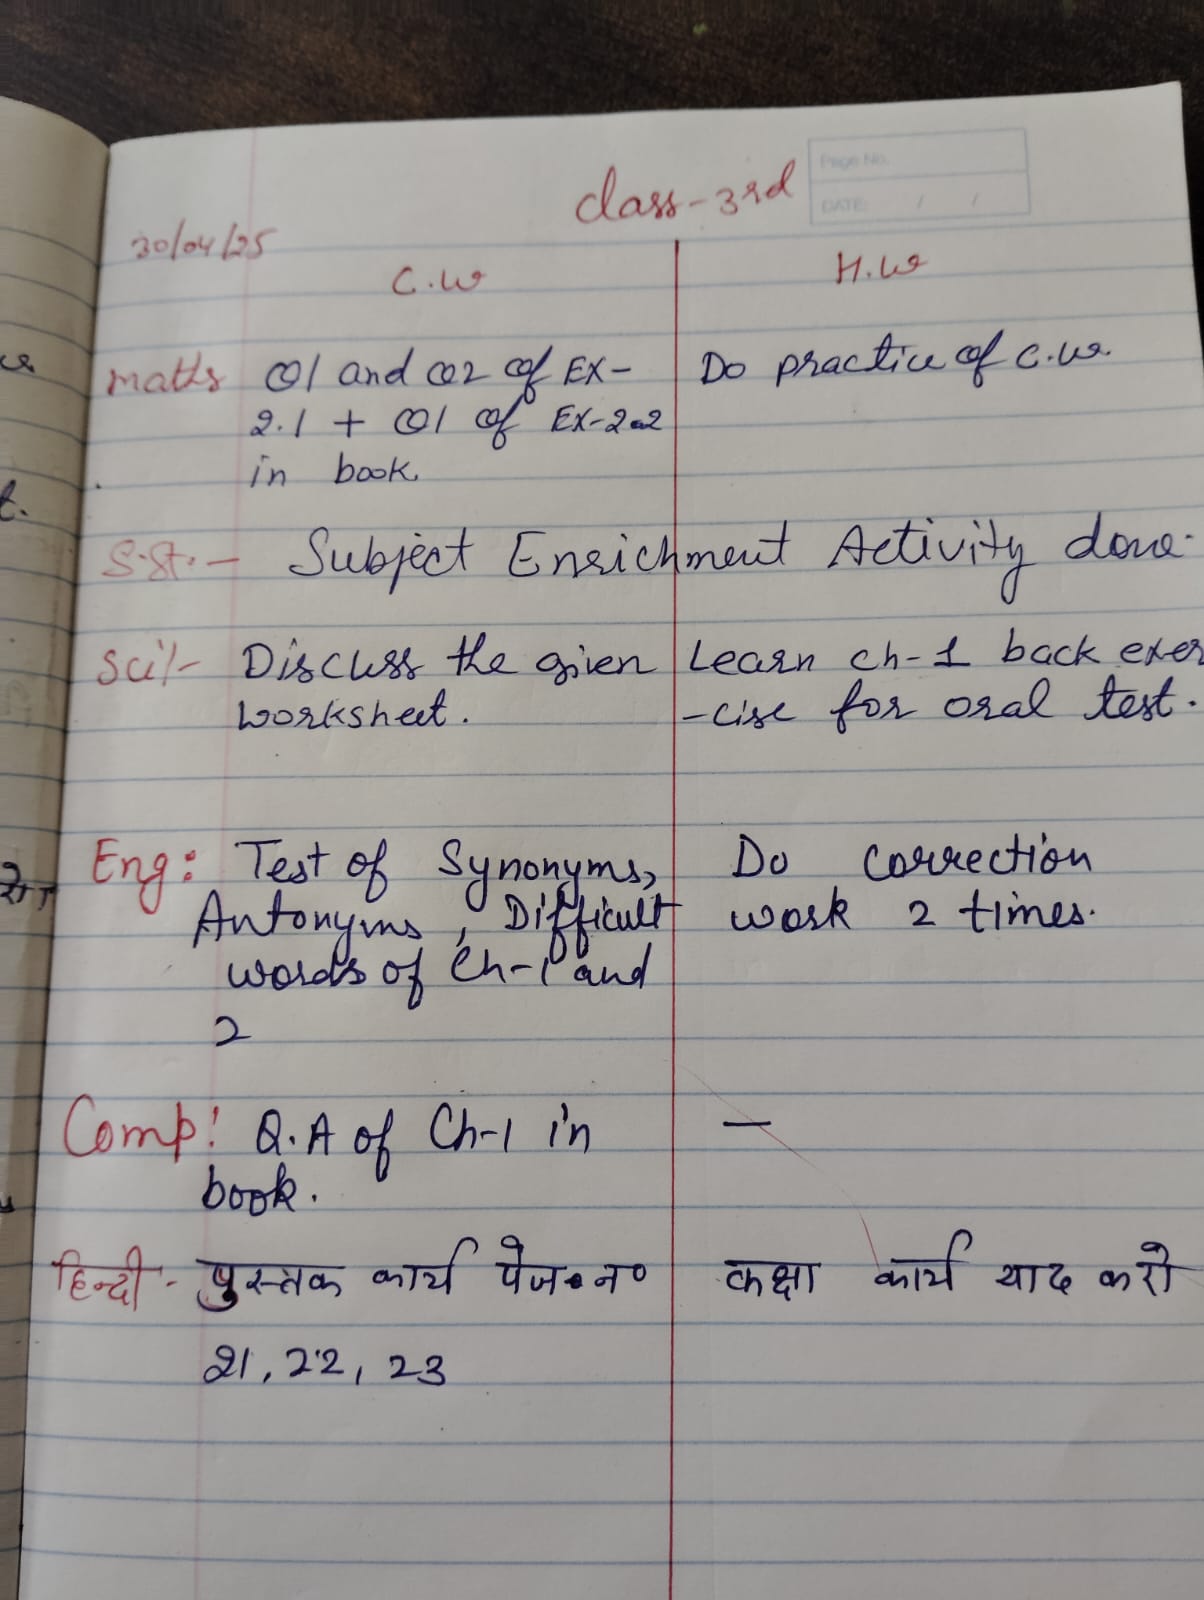 Page No.
DATE: / /
class-3rd
30/04/25
C.W
H.W
maths Q1 and Q2 of EX-
2.1 + Q1 of EX-2.2
in book.
Do practice of C.W.
S.St.- Subject Enrichment Activity done.
Sci/- Discuss the given
worksheet.
Learn ch-1 back exer
-cise for oral test.
Eng: Test of Synonyms,
Antonyms, Difficult
words of Ch-1 and
2
Do correction
work 2 times.
Comp: Q.A of Ch-1 in
book.
—
हिन्दी - पुस्तक कार्य पेज॰न॰
21, 22, 23
कक्षा कार्य याद करो